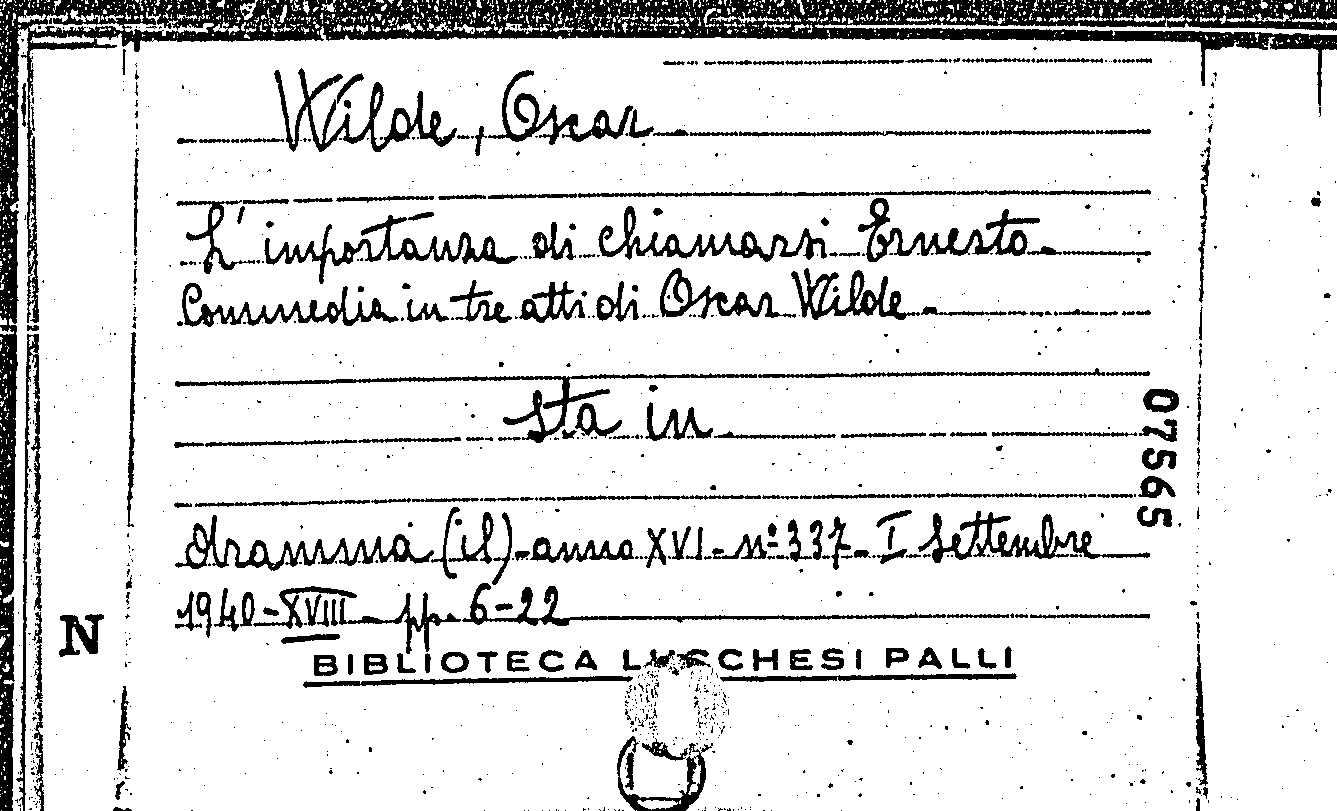 Wilde, Oscar
L'importanza di chiamarsi Ernesto.
Commedia in tre atti di Oscar Wilde.
sta in
dramma (il) - anno XVI - nº 337 - I Settembre
1940 - XVIII - pp. 6-22
BIBLIOTECA LUCCHESI PALLI
07565
N